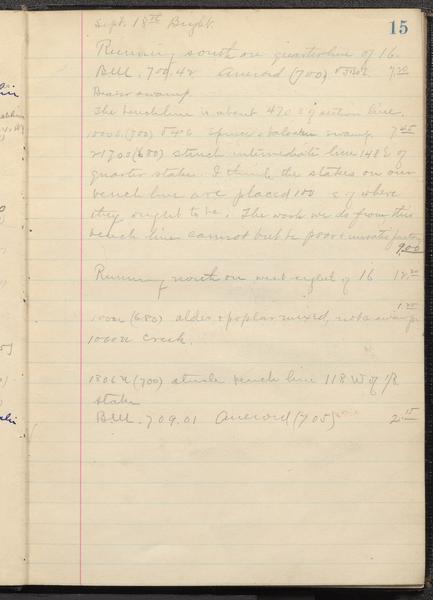 15
Sept. 18th Bright
Running south on quarterline of 16.
B.M. 700.42 Aneroid (700) 7.20
swamp.
The bench line is about 470 S of section line.
1000 S (700) Spruce & balsam swamp 7.45
1700 (680) struck intermediate line 148 E of
quarter stake. I think the stakes on our
bench line are placed 100 E of where
they ought to be. The work we do from this
bench line cannot but be poor &
9.00
Running north on west eighth of 16 12.20
1.20
1000 N (680) alder & poplar mixed, not a swamp
1000 N creek.
1806 N (700) struck bench line 118 W of 1/8
stake
B.M. 709.01 Aneroid (705) 2.15